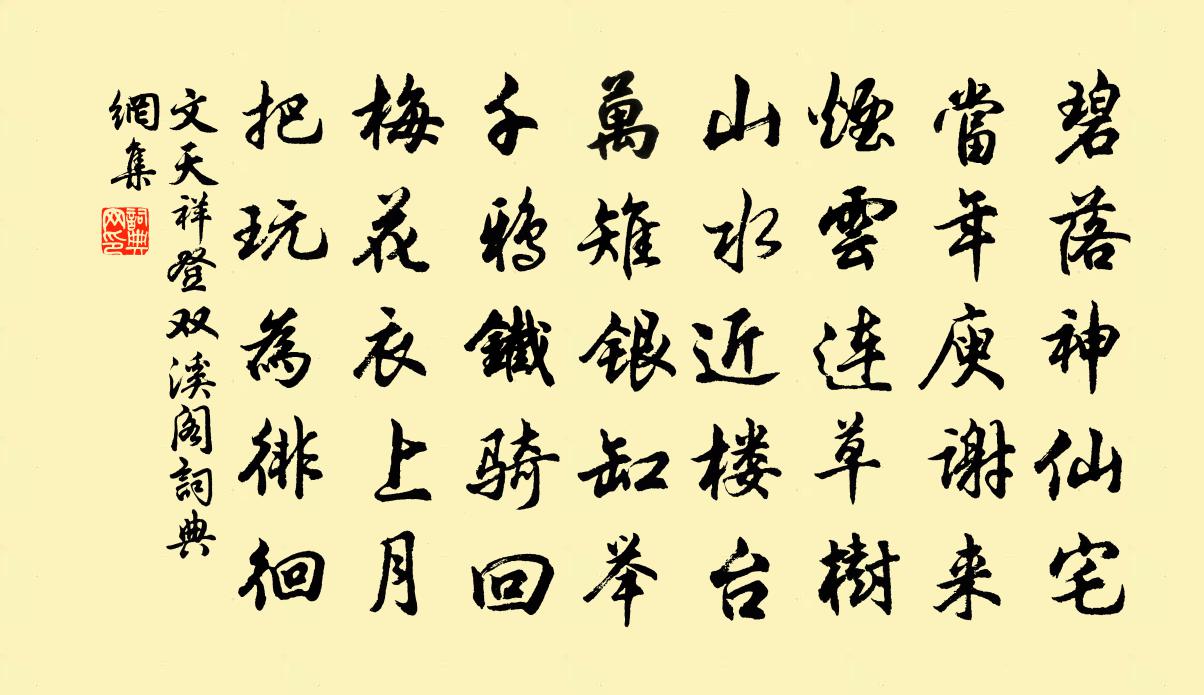 碧落神仙宅
當年庾謝来
煙雲連草樹
山水近楼台
萬雉銀缸举
千鴉鐵騎回
梅花衣上月
把玩為徘徊
文天祥登双溪阁詞典
網集
詞典
网印